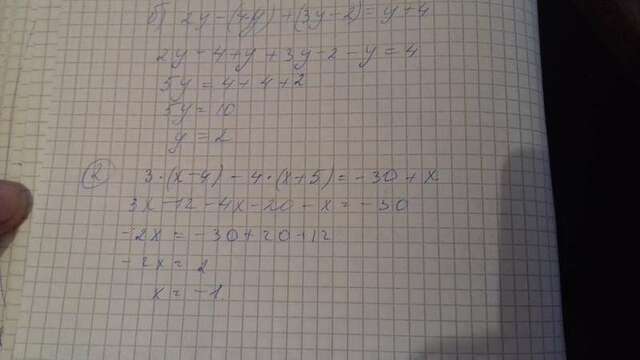 б) 2y - (4y) + (3y - 2) = y + 4
2y - 4 + y + 3y - 2 - y = 4
5y = 4 + 4 + 2
5y = 10
y = 2
② 3·(x-4) - 4·(x+5) = -30 + x
3x - 12 - 4x - 20 - x = -30
-2x = -30 + 20 + 12
-2x = 2
x = -1